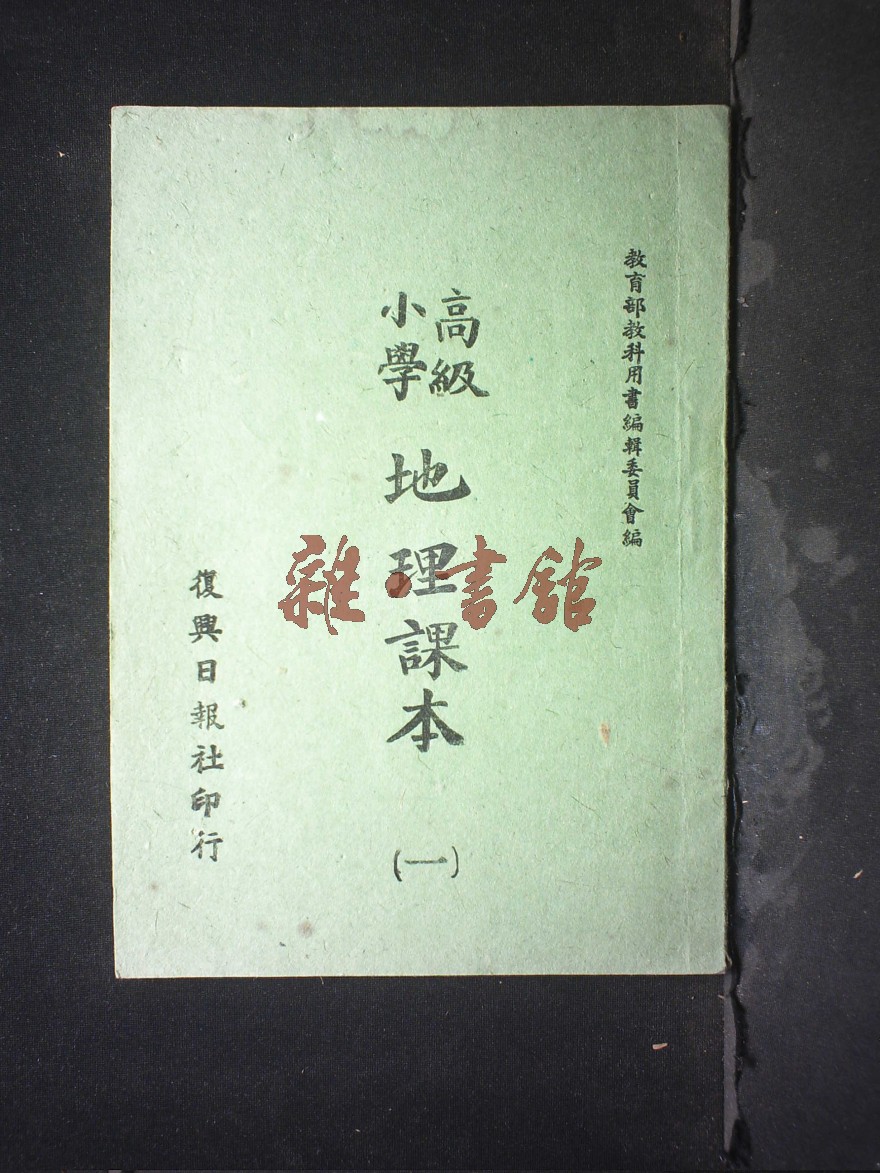 教育部教科用書編輯委員會編
高級
小學
地理課本
(一)
復興日報社印行
雜·書館